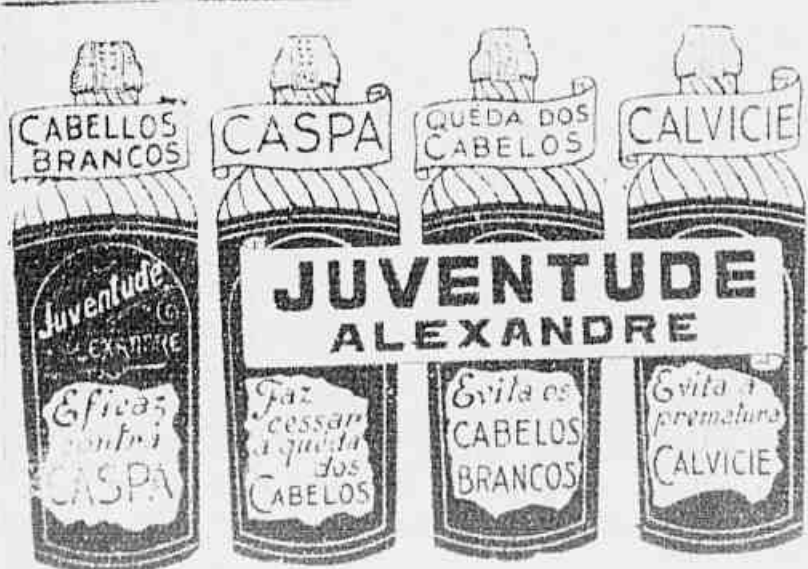 CABELLOS
BRANCOS
CASPA
QUEDA DOS
CABELOS
CALVICIE
JUVENTUDE
ALEXANDRE
Juventude
ALEXANDRE
Eficaz
contra
CASPA
Faz
cessar
a queda
dos
CABELOS
Evita os
CABELOS
BRANCOS
Evita a
prematura
CALVICIE